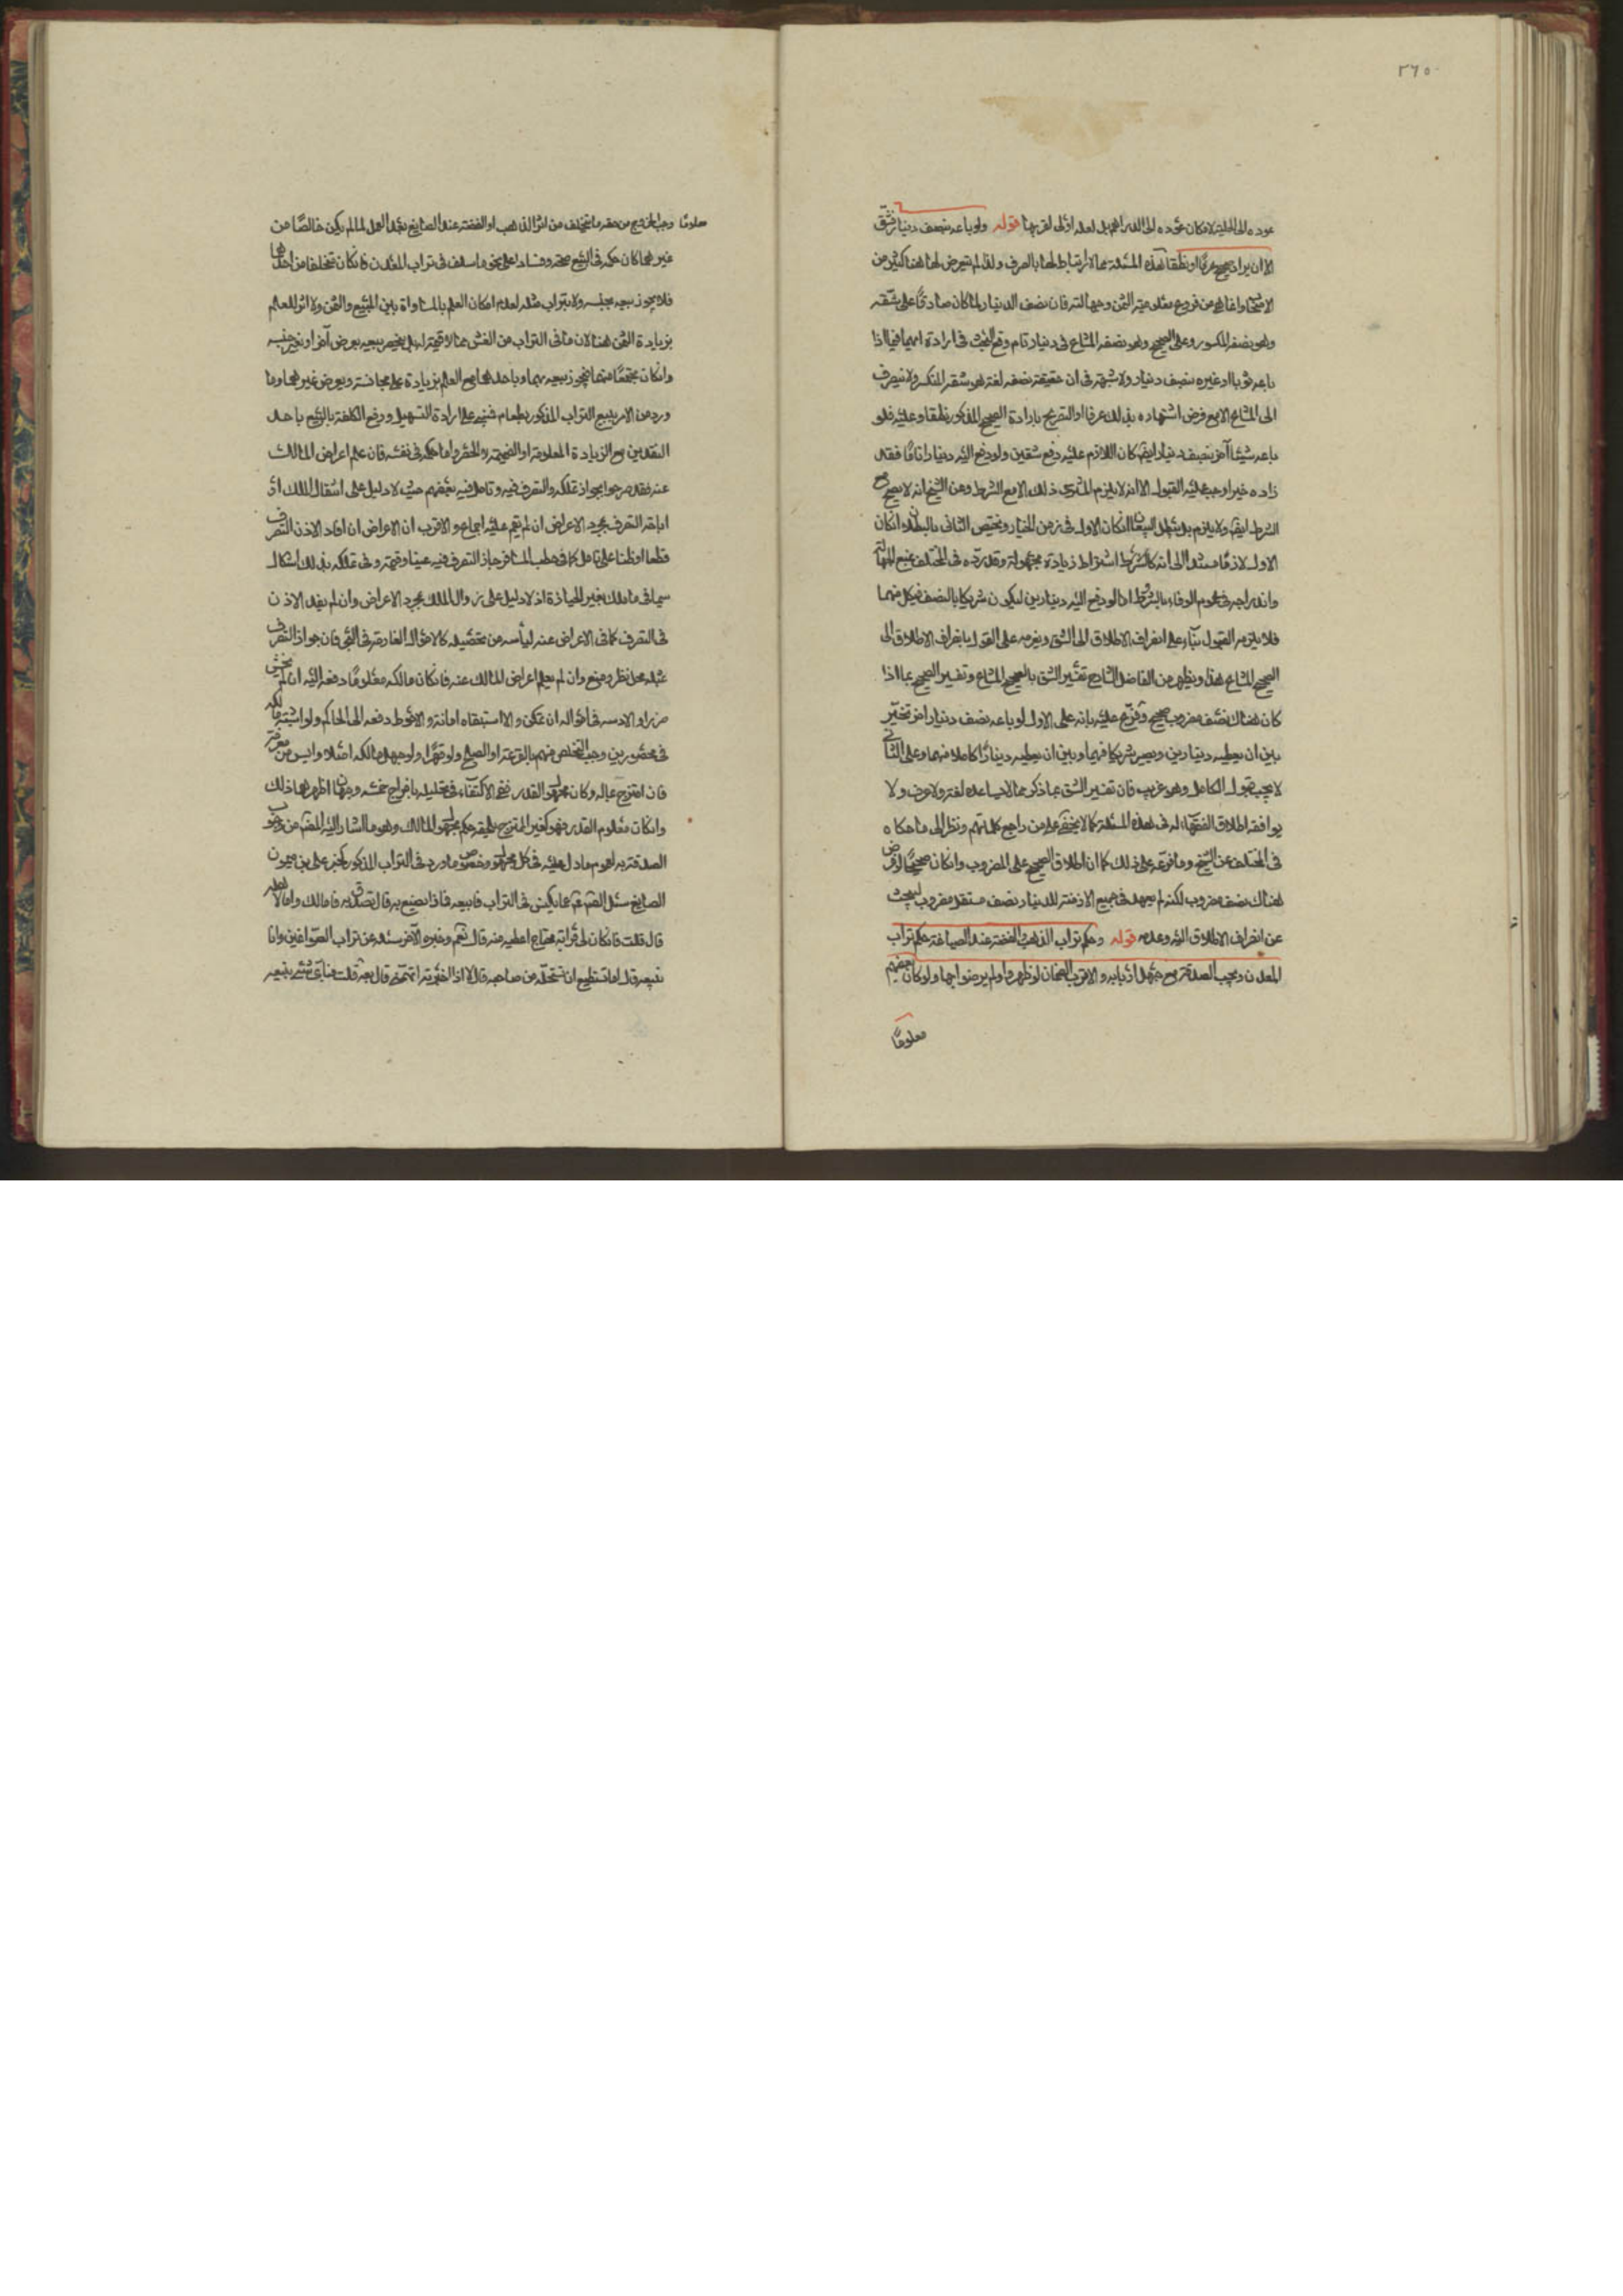 ٢٦٥
عوده الى الحلية لامكان عوده الى الدراهم بل لعله اولى لقربها قوله ولو باعه بنصف دينار فشق
الا ان يراد صحيح عرفا او نطقا هذه المسئلة مما لا ارتباط لها بالصرف ولذا لم يتعرض لها هنا كثير من
الاصحاب وانما هى من فروع معلومية الثمن وجهالته فان نصف الدينار لما كان صادقا على شقه
وهو نصفه المكسور وعلى الصحيح وهو نصفه المشاع فى دينار تام وقع البحث فى ارادة ايهما فيما اذا
باعه ثوبا او غيره بنصف دينار ولا شبهة فى ان حقيقة نصفه لغة هو شقه المنكسر ولا ينصرف
الى المشاع الا مع فرض اشتهاره بذلك عرفا او التصريح بارادة الصحيح المذكور نطقا وعليه فلو
باعه شيئا آخر بنصف دينار ايضا كان اللازم عليه دفع شقين ولو دفع اليه دينارا تاما فقد
زاده خيرا وجب عليه القبول الا انه لا يلزم المشترى ذلك الا مع الشرط وعن الشيخ انه لا يصح مع
الشرط ايضا ولا يلزم بل يبطل البيعان انكان الاول فى زمن الخيار ويختص الثانى بالبطلان انكان
الاول لازما مستندا الى انه كالشرط اشتراط زيادة مجهولة وقد رده فى المختلف بمنع الجهالة
واندراجه فى عموم الوفاء بالشرط اما لو دفع اليه دينارين ليكون شريكا بالنصف فى كل منهما
فلا يلزمه القبول بناء على انصراف الاطلاق الى الشق ويلزمه على القول بانصراف الاطلاق الى
الصحيح المشاع هذا ويظهر من الفاضل الشارح تفسير الشق بالصحيح المشاع وتفسير الصحيح بما اذا
كان هناك نصف مضروب صحيح وفرع عليه بانه على الاول لو باعه بنصف دينار اخر تخير
بين ان يعطيه دينارين ويصير شريكا فيهما وبين ان يعطيه دينارا كاملا منهما وعلى الثانى
لا يجب قبول الكامل وهو غريب فان تفسير الشق بما ذكر مما لا يساعده لغة ولا عرف ولا
يوافقه اطلاق الفقهاء له فى هذه المسئلة كما لا يخفى على من راجع كلماتهم ونظر الى ما حكاه
فى المختلف عن الشيخ وما فرعه على ذلك كما ان اطلاق الصحيح على المضروب وانكان صحيحا لو فرض
هناك نصف مضروب لكنه لم يعهد فى جميع الازمنة للدينار نصف مستقل مضروب ليبحث
عن انصراف الاطلاق اليه وعدمه قوله وحكم تراب الذهب والفضة عند الصياغة حكم تراب
المعدن ويجب الصدقة مع جهل اربابه والاقرب الضمان لو ظهروا ولم يرضوا بها ولو كان بعضهم
معلوما
معلوما وجب الخروج من حقه ما يتخلف من اثر الذهب او الفضة عند الصايغ بعد العمل لما لم يكن خالصا من
غيرهما كان حكمه فى البيع صحة وفسادا على نحو ما سلف فى تراب المعدن فانكان تخلفا من احدهما
فلا يجوز بيعه بجنسه ولا بتراب مثله لعدم امكان العلم بالمساواة بين المبيع والثمن ولا اثر للعلم
بزيادة الثمن هنا لان ما فى التراب من الغش مما لا قيمة له بل يختص بيعه بعوض آخر او بغير جنسه
وانكان مجتمعا منهما فيجوز بيعه بهما وباحدهما مع العلم بزيادة على مجانسه وبعوض غيرهما وما
ورد من الامر ببيع التراب المذكور بطعام فمبنى على ارادة التسهيل ودفع الكلفة بالبيع باحد
النقدين مع الزيادة المعلومة او الضميمة واما حكمه فى نفسه فان علم اعراض المالك
عنه فقد صرحوا بجواز تملكه والتصرف فيه وتامل فيه بعضهم حيث لا دليل على انتقال الملك او
اباحة التصرف بمجرد الاعراض ان لم يقم عليه اجماع والاقرب ان الاعراض ان افاد الاذن فى التصرف
قطعا او ظنا على تامل كما فى حطب المسافر جاز التصرف فيه عينا وقيمة وفى تملكه بذلك اشكال
سيما فى ما ملك بغير الحيازة اذ لا دليل على زوال الملك بمجرد الاعراض وان لم يفد الاذن
فى التصرف كما فى الاعراض عنه ليأسه من تحصيله كالاموال الغارقة فى البحر فان جواز التصرف
بمثله محل نظر ومنع وان لم يعلم اعراض المالك عنه فانكان مالكه معلوما دفعه اليه ان لم يخش
ضررا والا دسه فى امواله ان تمكن والا استبقاه امانة والاحوط دفعه الى الحاكم ولو اشتبه مالكه
فى محصورين وجب التخلص منهم بالقرعة او الصلح ولو قهرا ولو جهل مالكه اصلا وايس من معرفته
فان امتزج بماله وكان مجهول القدر ففى الاكتفاء فى تحليله باخراج خمسه وجهان اظهرهما ذلك
وانكان معلوم القدر فهو كغير الممتزج يلحقه حكم مجهول المالك وهو ما اشار اليه المصنف من وجوب
الصدقة به لعموم ما دل عليه فى كل مجهول وخصوص ما ورد فى التراب المذكور كخبر على بن ميمون
الصايغ سئل الصادق عما يكنس فى التراب فابيعه فماذا نصنع به قال تصدق به فاما لك واما لاهله
قال قلت فانكان لى قرابة محتاج اعطيه منه قال نعم وخبره الآخر سئله عن تراب الصواغين وانا
نبيعه قال اما تستطيع ان تستحله من صاحبه قال لا اذا اخبرته اتهمنى قال بعه قلت فباى شئ نبيعه